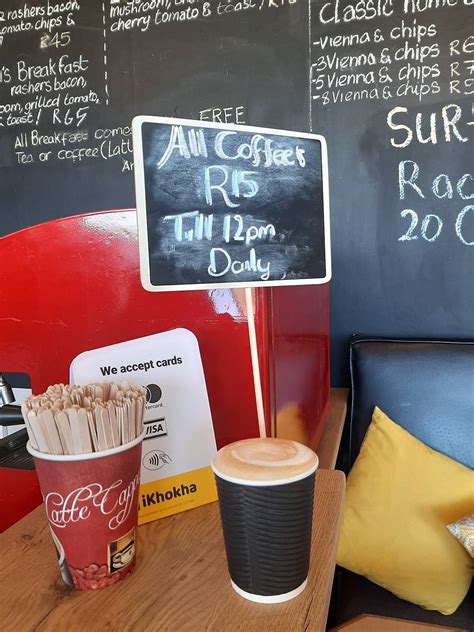 2 rashers bacon,
tomato & chips
R45
mushroom, brown
cherry tomato & toast/ R
's Breakfast
rashers bacon,
oom, grilled tomato,
& toast/ R65
All Breakfast comes
FREE
Tea or coffee (Latt
Classic home
- Vienna & chips R
- 3 Vienna & chips R6
- 5 Vienna & chips R7
- 8 Vienna & chips R
SUR
Rac
20 C
All Coffee's
R15
Till 12pm
Daily
We accept cards
mastercard.
VISA
iKhokha
Latte Capp